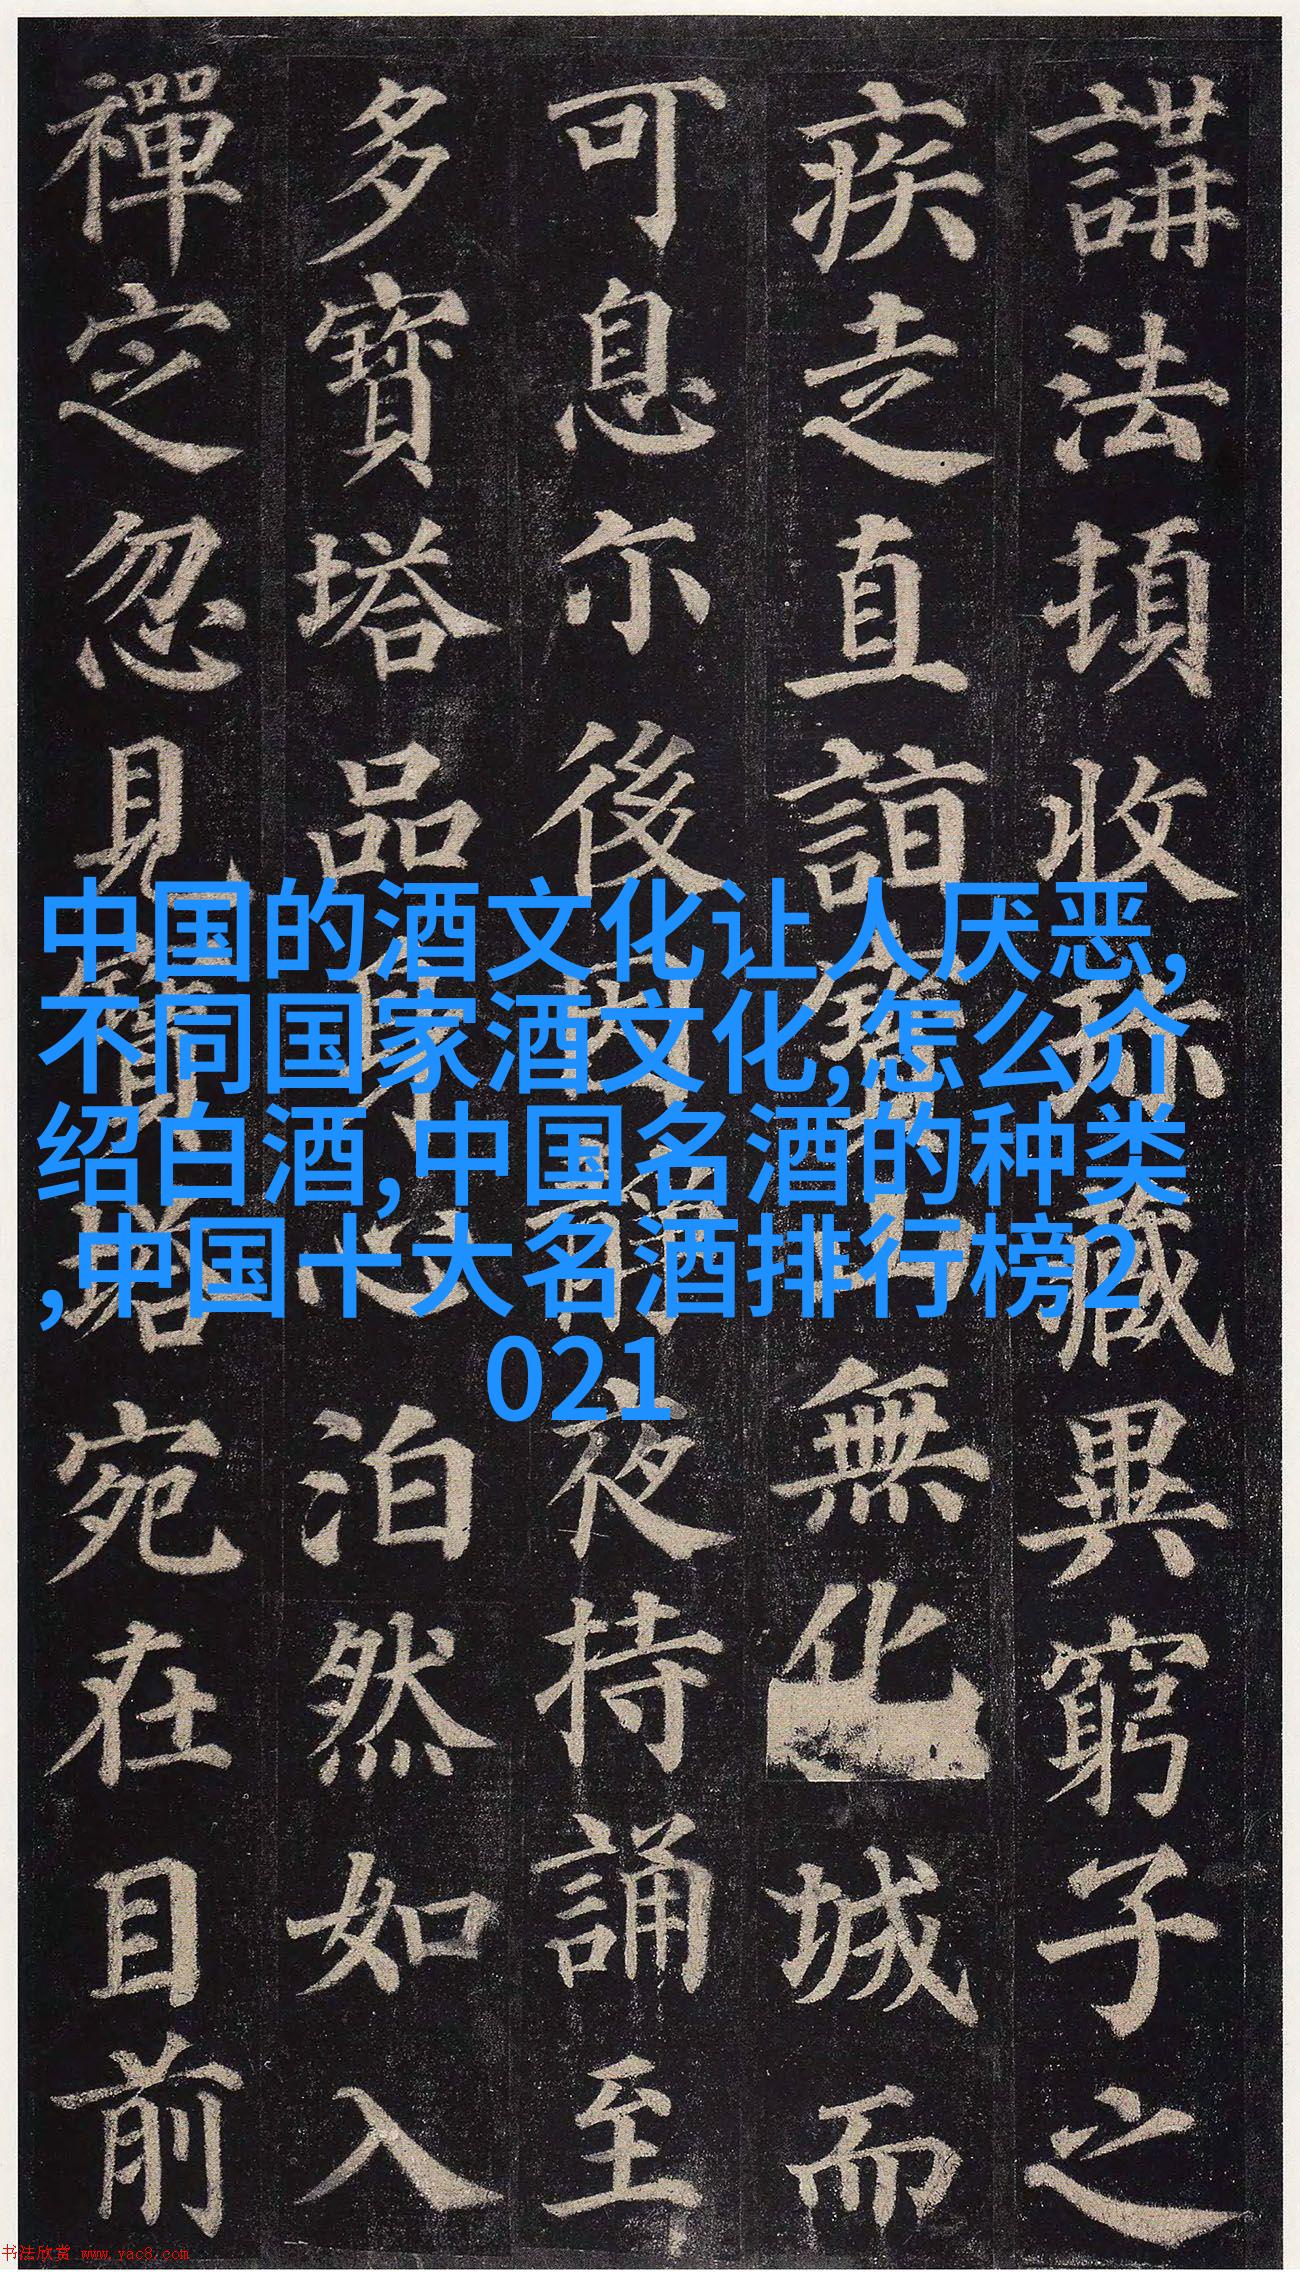 講法頓收珎藏異窮子之
疾走直詣寶山無化城而
可息尒後因靜夜持誦至
多寶塔品身心泊然如入
禪定忽見寶塔宛在目前
中国的酒文化让人厌恶,
不同国家酒文化,怎么介
绍白酒,中国名酒的种类
,中国十大名酒排行榜2
021
书法欣赏 www.yac8.com